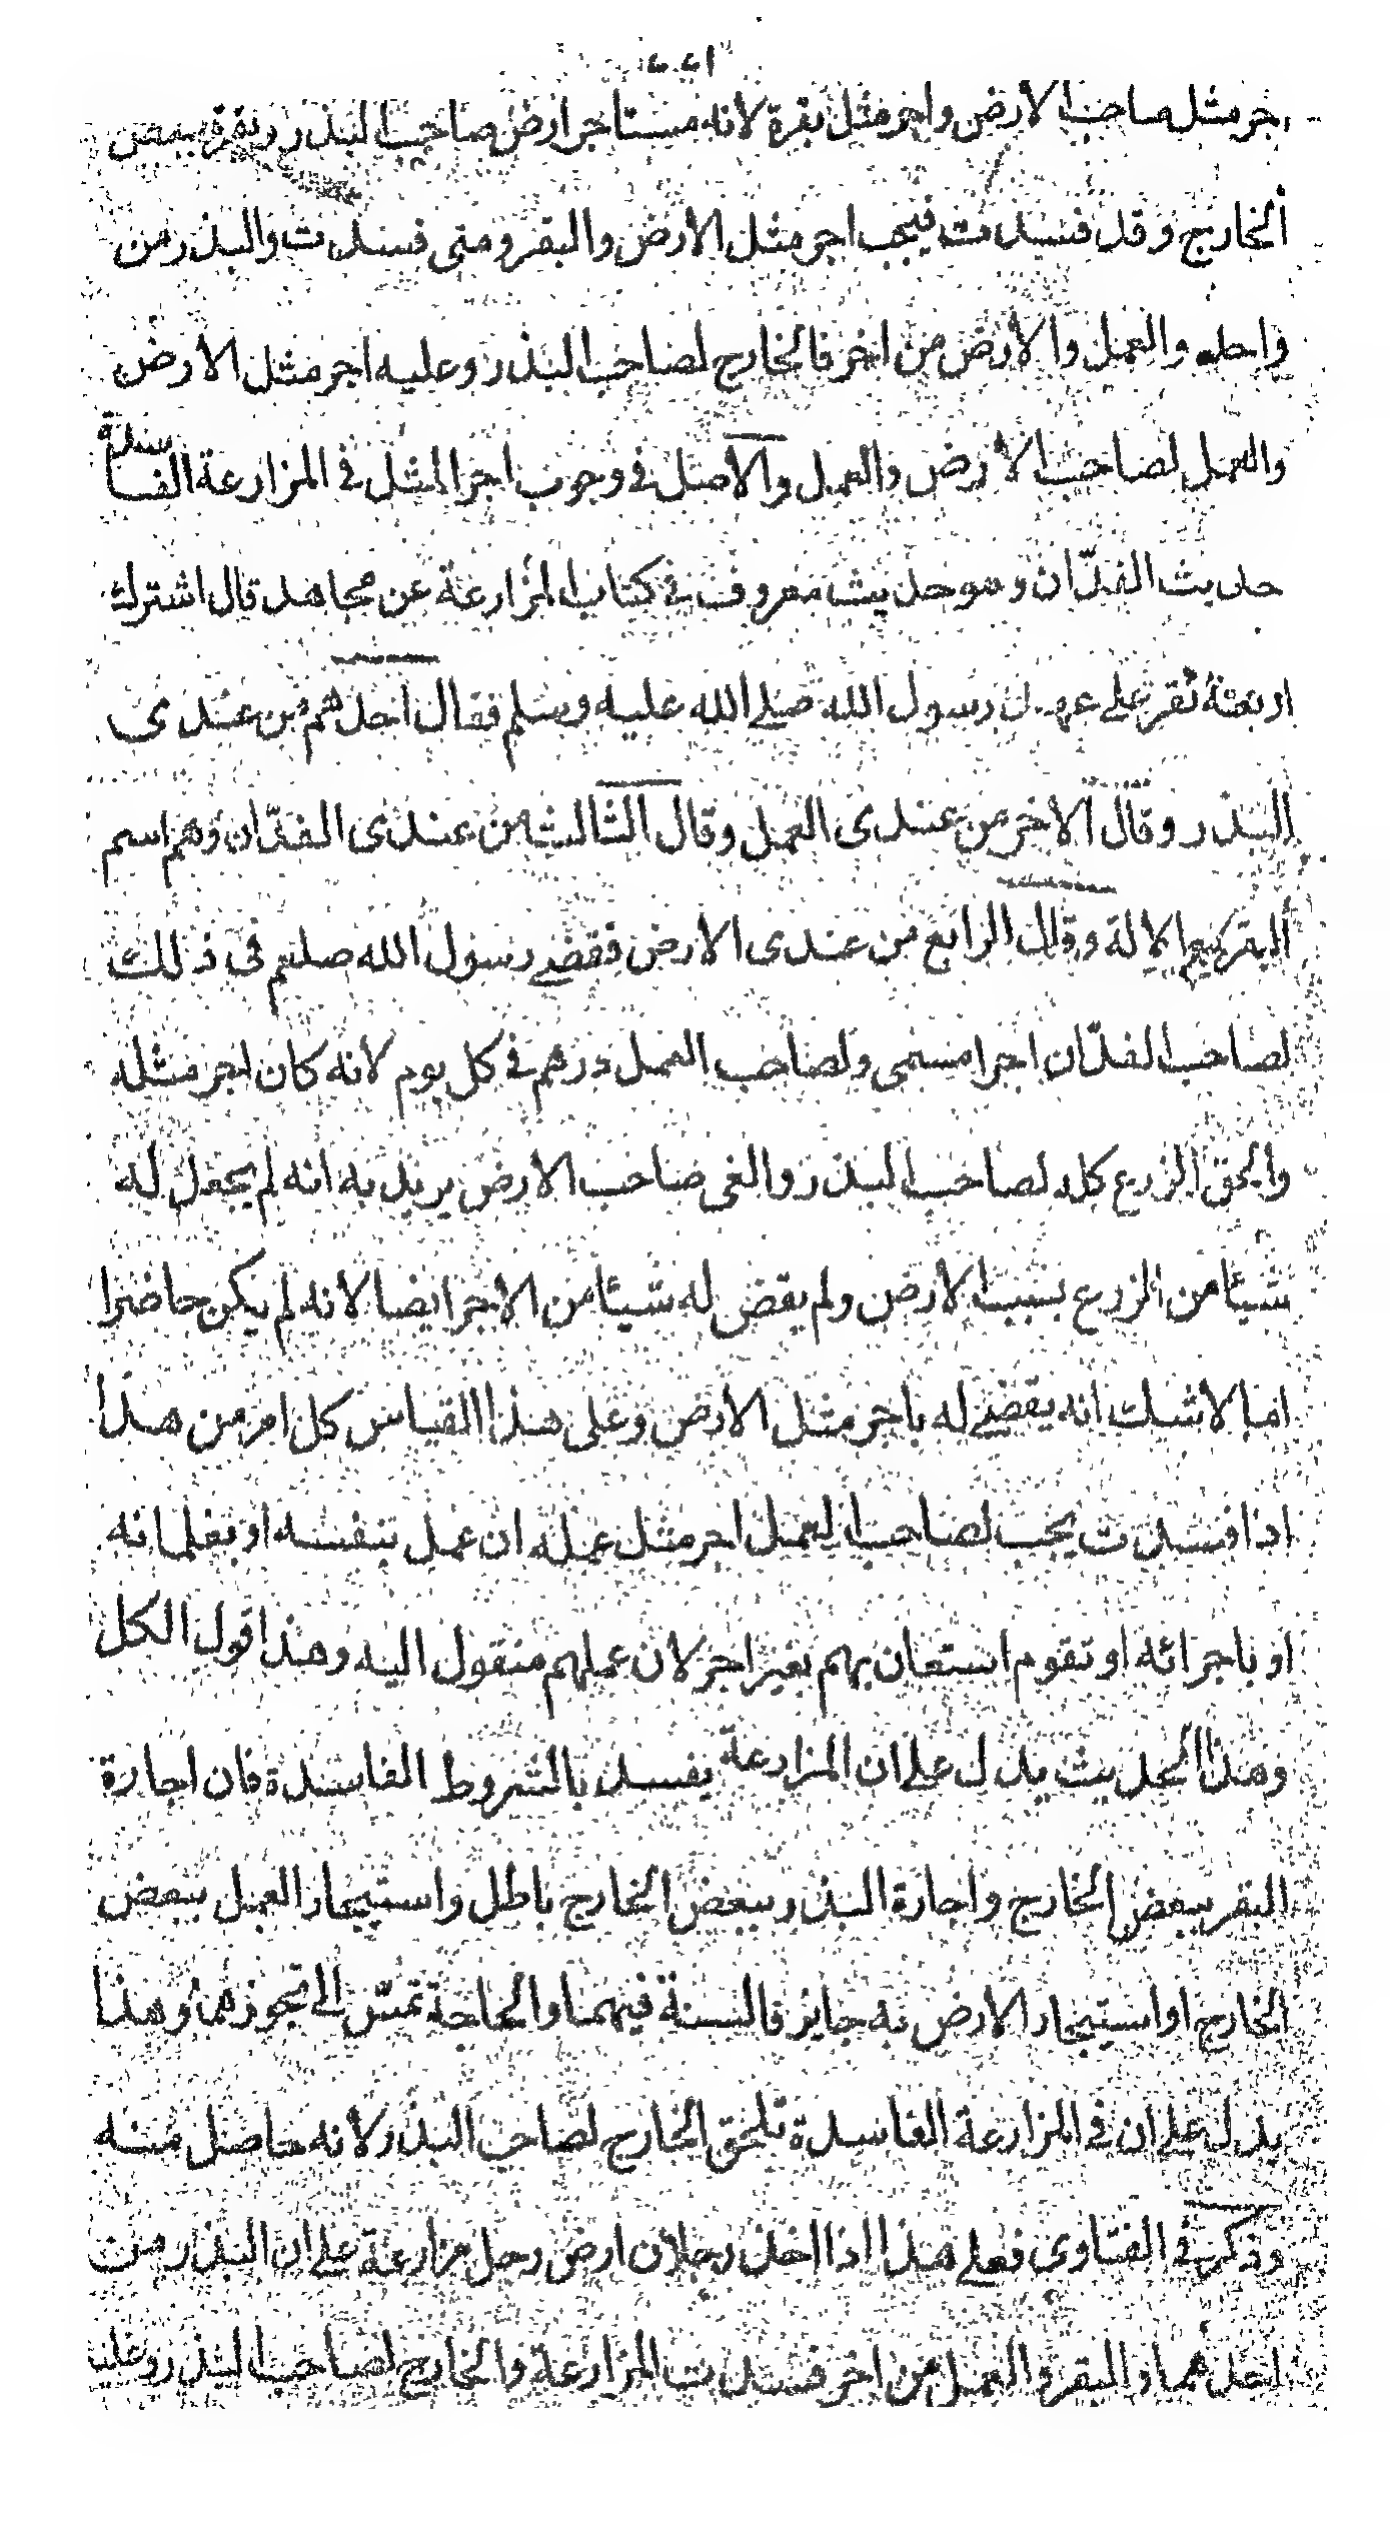 اجر مثل صاحب الارض واجر مثل بقرة لانه مستاجر ارض صاحب البذر وبقره ببعض
الخارج وقد فسدت فيجب اجر مثل الارض والبقر ومتى فسدت والبذر من
واحد والعمل والارض من اخر فالخارج لصاحب البذر وعليه اجر مثل الارض
والعمل لصاحب الارض والعمل والاصل فى وجوب اجر المثل فى المزارعة الفاسدة
حديث الفدّان وهو حديث معروف فى كتاب المزارعة عن مجاهد قال اشترك
اربعة نفر على عهد رسول الله صلى الله عليه وسلم فقال احدهم من عندى
البذر وقال الاخر من عندى العمل وقال الثالث من عندى الفدّان وهم اسم
البقر الالة وقال الرابع من عندى الارض فقضى رسول الله صلعم فى ذلك
لصاحب الفدّان اجرا مسمى ولصاحب العمل درهم فى كل يوم لانه كان اجر مثله
والحق الزرع كله لصاحب البذر والغى صاحب الارض يريد به انه لم يجعل له
شيئا من الزرع بسبب الارض ولم يقض له شيئا من الاجر ايضا لانه لم يكن حاضرا
اما لاشك انه يقضى له باجر مثل الارض وعلى هذا القياس كل امر من هذا
اذا فسدت يجب لصاحب العمل اجر مثل عمله ان عمل بنفسه او بغلمانه
او باجرائه او بقوم استعان بهم بغير اجر لان عملهم منقول اليه وهذا قول الكل
وهذا الحديث يدل على ان المزارعة يفسد بالشروط الفاسدة فان اجارة
البقر ببعض الخارج واجارة البذر ببعض الخارج باطل واستيجار العمل ببعض
الخارج او استيجار الارض به جايز فالسنة فيهما والحاجة تمسّ الى تجوزهما وهذا
يدل على ان فى المزارعة الفاسدة تلحق الخارج لصاحب البذر لانه حاصل منه
وذكر فى الفتاوى فعلى هذا اذا اخذ رجلان ارض رجل مزارعة على ان البذر من
احدهما والبقر والعمل من اخر فسدت المزارعة والخارج لصاحب البذر وعليه